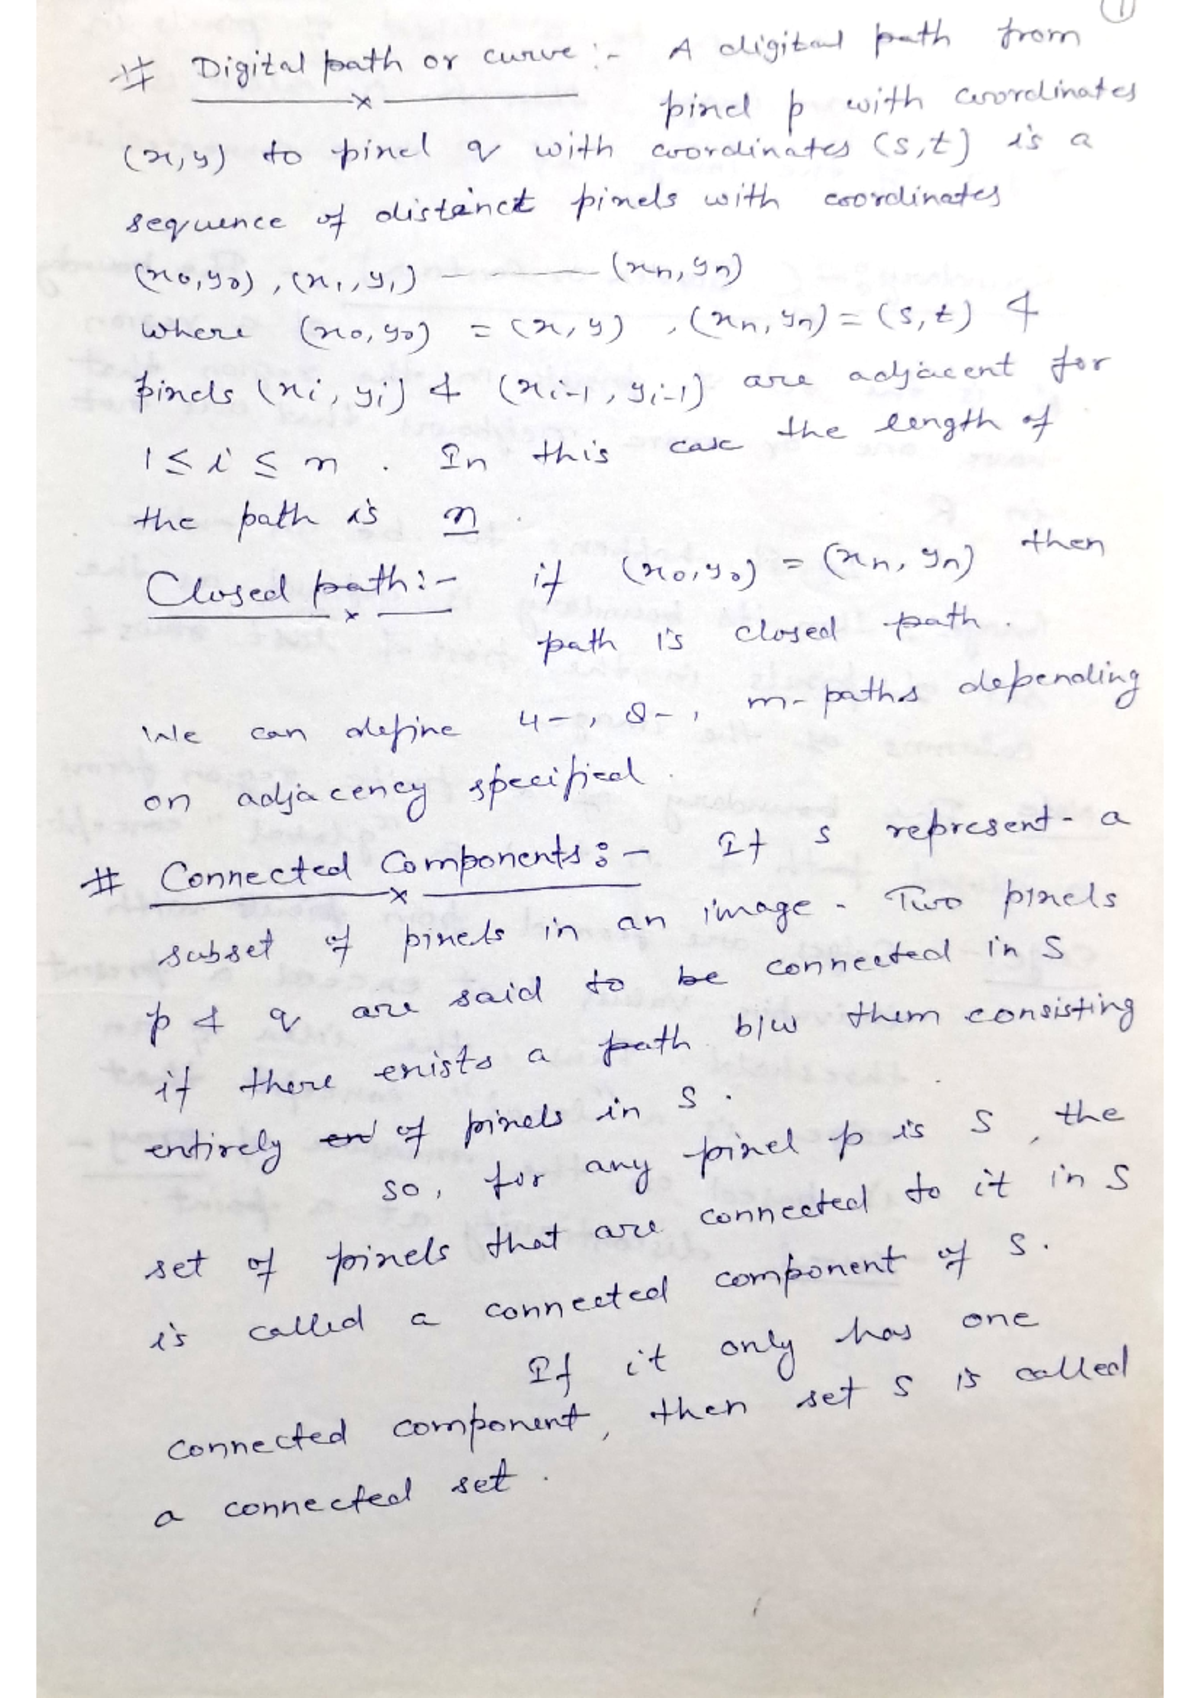 1
# Digital path or curve :- A digital path from
pixel p with coordinates
(x,y) to pixel q with coordinates (s,t) is a
sequence of distinct pixels with coordinates
(x0,y0), (x1,y1) ------- (xn,yn)
where (x0,y0) = (x,y), (xn,yn) = (s,t) &
pixels (xi,yi) & (xi-1,yi-1) are adjacent for
1 ≤ i ≤ n. In this case the length of
the path is n.
Closed path :- if (x0,y0) = (xn,yn) then
path is closed path.
We can define 4-, 8-, m-paths depending
on adjacency specified.
# Connected Components :- If S represent a
subset of pixels in an image. Two pixels
p & q are said to be connected in S
if there exists a path b/w them consisting
entirely of pixels in S.
So, for any pixel p is S, the
set of pixels that are connected to it in S
is called a connected component of S.
If it only has one
connected component, then set S is called
a connected set.